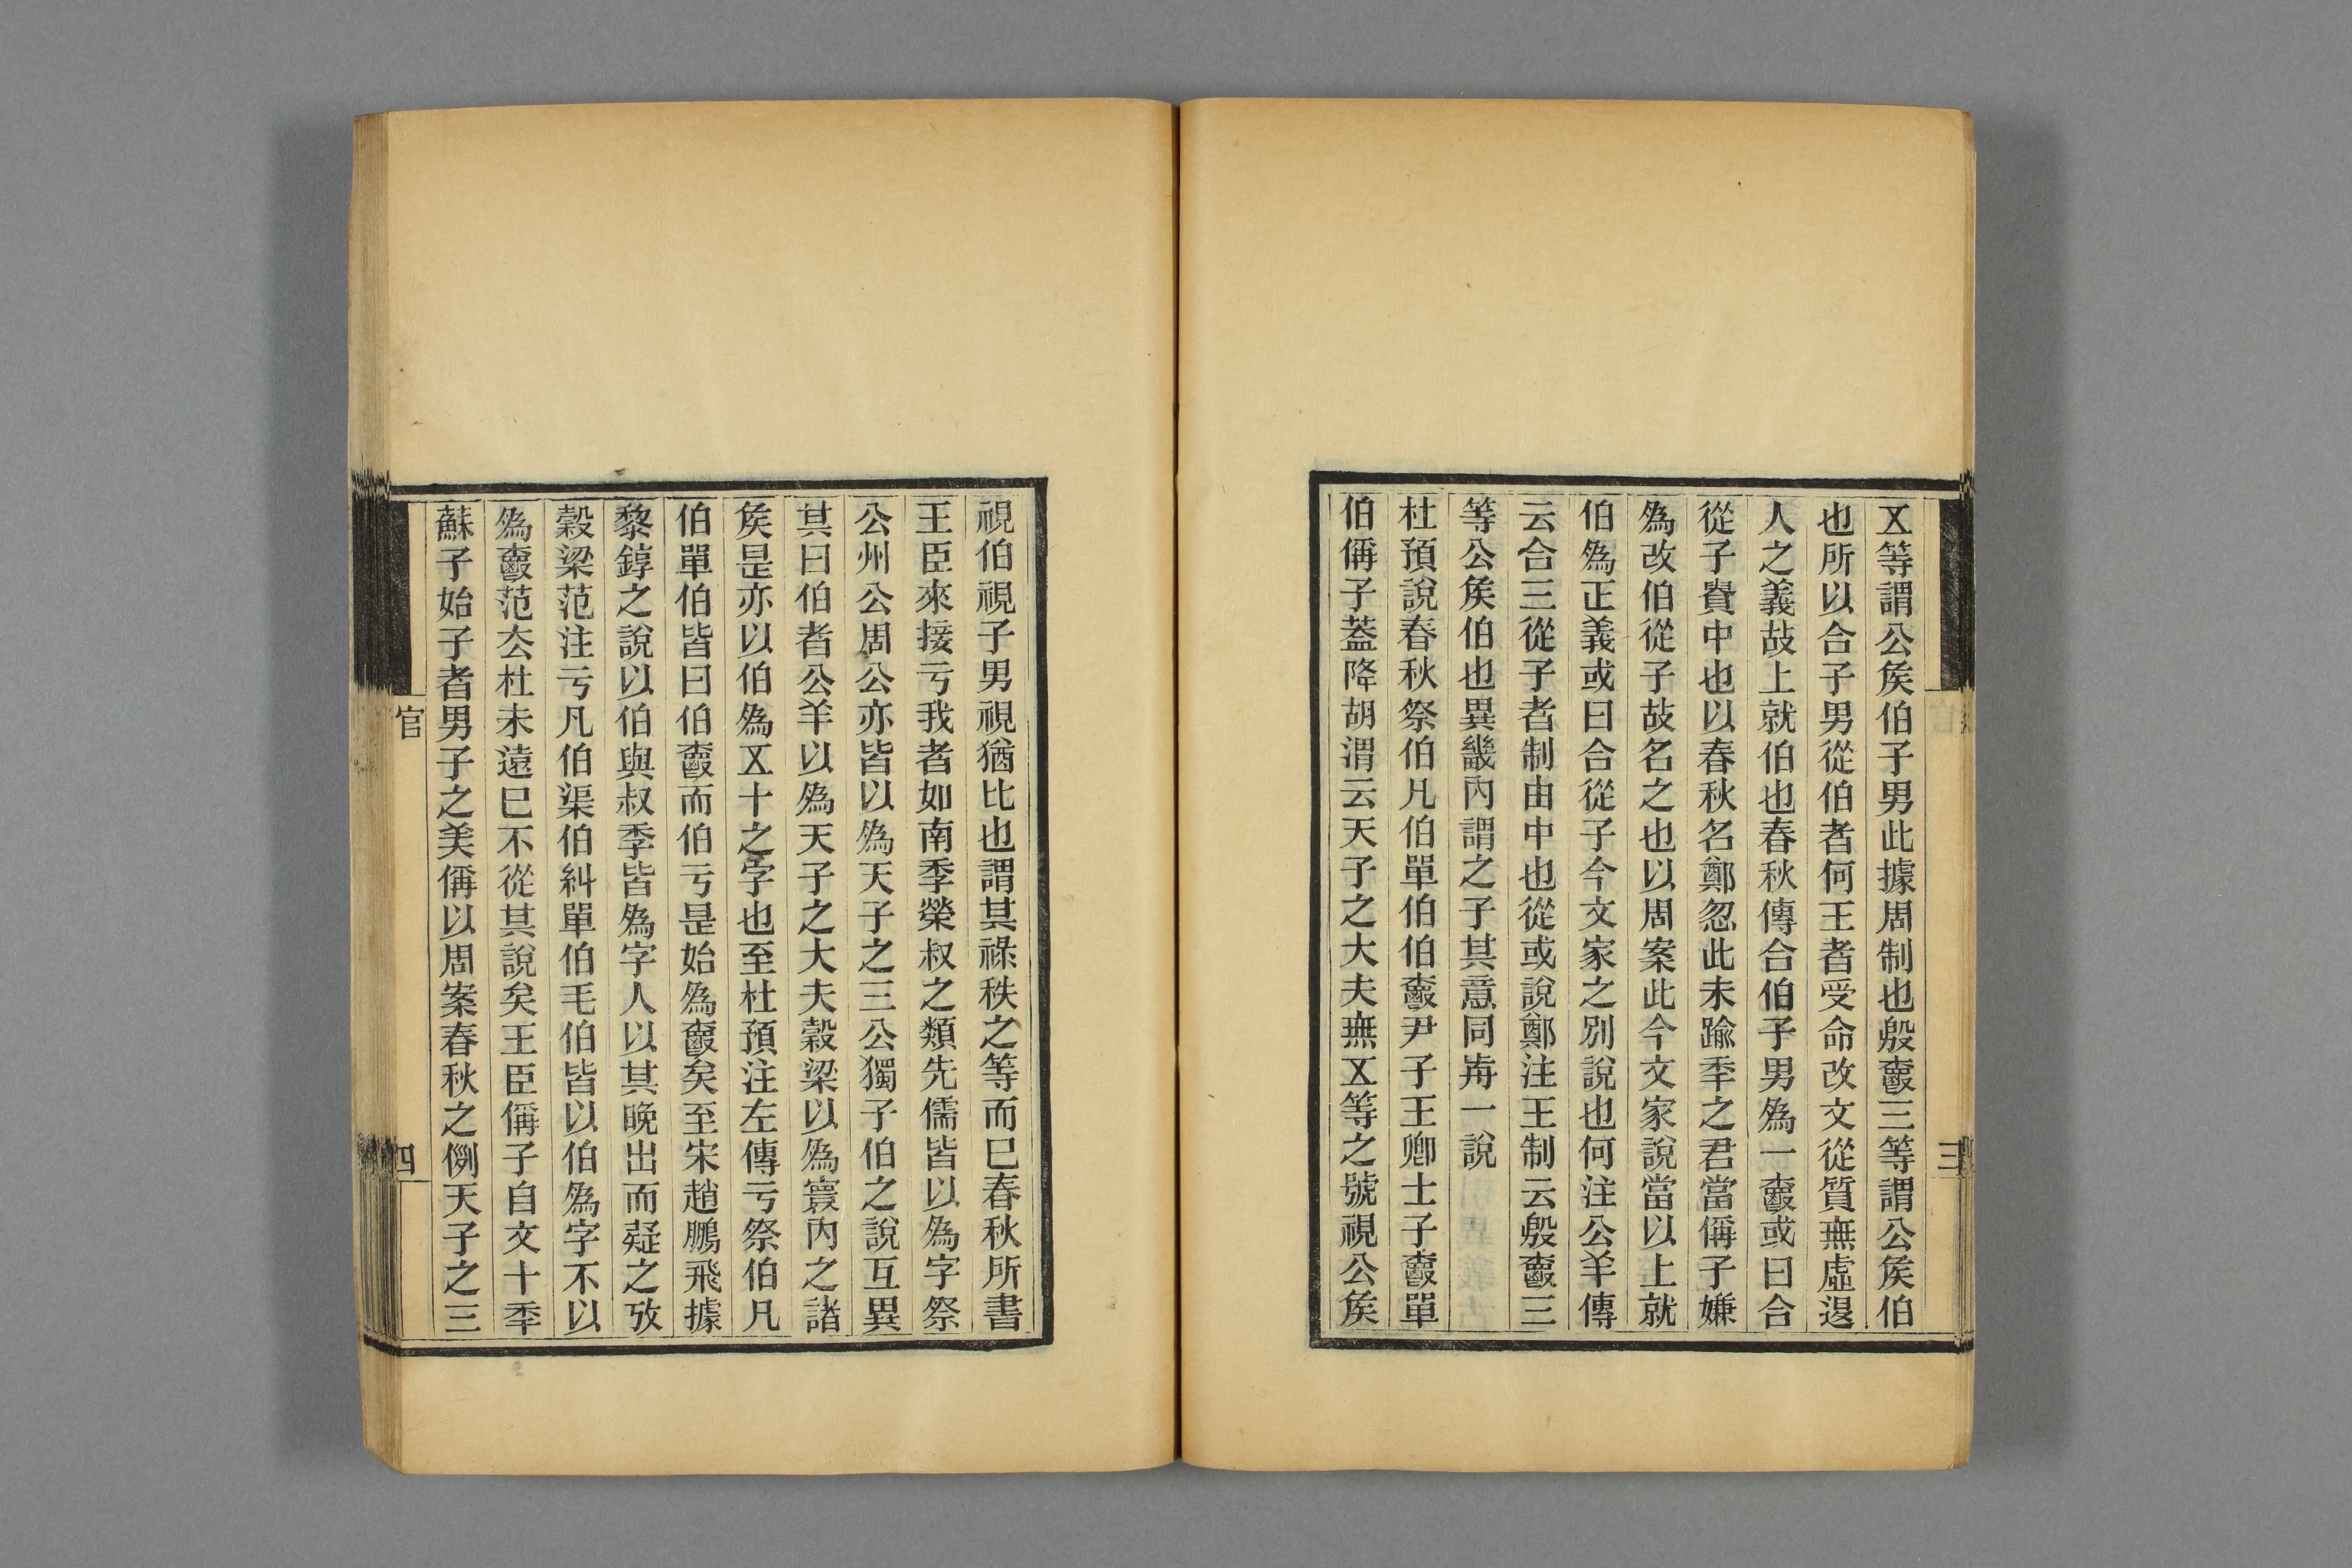 㐅等謂公矦伯子男此據周制也殷𤕌三等謂公矦伯
也所以合子男從伯者何王者受命改文從質無虛退
人之義故上就伯也春秋傳合伯子男爲一𤕌或曰合
從子貴中也以春秋名鄭忽此未踰秊之君當偁子嫌
爲改伯從子故名之也以周案此今文家說當以上就
伯爲正義或曰合從子今文家之別說也何注公羊傳
云合三從子者制由中也從或說鄭注王制云殷𤕌三
等公矦伯也異畿內謂之子其意同歬一說
杜預說春秋祭伯凡伯單伯伯𤕌尹子王卿士子𤕌單
伯偁子蓋降胡渭云天子之大夫無㐅等之號視公矦
視伯視子男視猶比也謂其祿秩之等而巳春秋所書
王臣來接亏我者如南季榮叔之類先儒皆以爲字祭
公州公周公亦皆以爲天子之三公獨子伯之說互異
其曰伯者公羊以爲天子之大夫穀梁以爲寰內之諸
矦是亦以伯爲㐅十之字也至杜預注左傳亏祭伯凡
伯單伯皆曰伯𤕌而伯亏是始爲𤕌矣至宋趙鵬飛據
黎錞之說以伯與叔季皆爲字人以其晚出而疑之攷
穀梁范注亏凡伯渠伯糾單伯毛伯皆以伯爲字不以
爲𤕌范厺杜未遠巳不從其說矣王臣偁子自文十秊
蘇子始子者男子之美偁以周案春秋之例天子之三
官
四
三